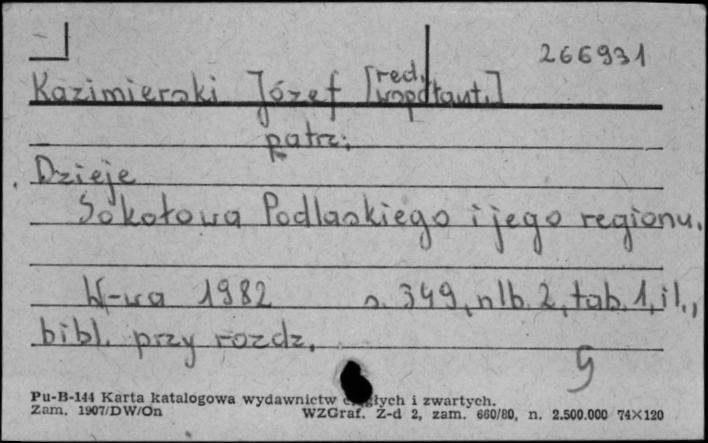 266931
Kazimierski Józef [red., współaut.]
patrz:
Dzieje
Sokołowa Podlaskiego i jego regionu.
W-wa 1982 s. 349, nlb. 2, tab. 1, il.,
bibl. przy rozdz.
G
Pu-B-144 Karta katalogowa wydawnictw ciągłych i zwartych.
Zam. 1907/DW/On WZGraf. Z-d 2, zam. 660/80, n. 2.500.000 74×120